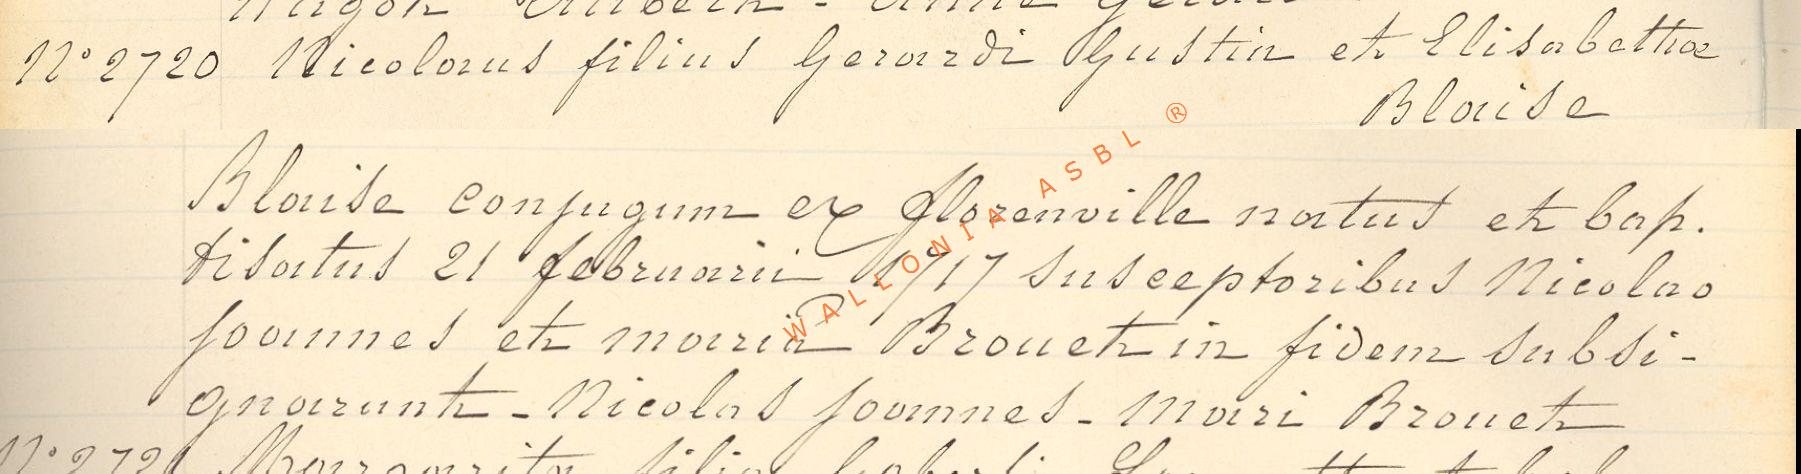 N° 2720 Nicolaus filius Gerardi Gustin et Elisabethæ
Blaise
Blaise conjugum ex florenville natus et bap.
tisatus 21 februarii 1717 susceptoribus Nicolao
Joannes et maria Brouet in fidem subsi-
gnarunt - Nicolas Joannes - mari Brouet
N° 2721 Margarita filia
WALLONIA ASBL ®